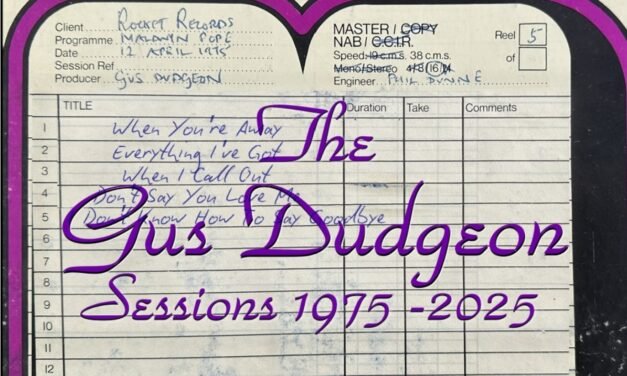 Client Rocket Records
Programme MALDWYN POPE
Date 12 APRIL 1975
Session Ref
Producer GUS DUDGEON
MASTER / COPY
NAB / C.C.I.R.
Reel 5
Speed: 19 c.m.s. 38 c.m.s.
of
Mono/Stereo 4/8/16
Engineer PHIL DUNNE
TITLE Duration Take Comments
1 When You're Away
2 Everything I've Got
3 When I Call Out
4 Don't Say You Love Me
5 Don't Know How To Say Goodbye
6
7
8
9
10
11
12
The
Gus Dudgeon
Sessions 1975 -2025